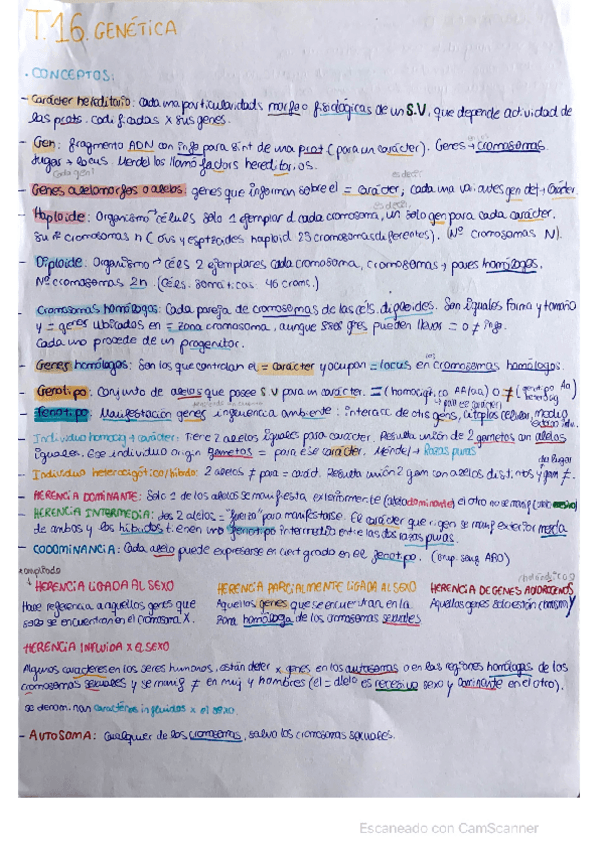 T.16. GENÉTICA
· CONCEPTOS:
- Carácter hereditario: Cada una particularidads morfo o fisiológicas de un S.V, que depende actividad de
las prots. codificadas x sus genes.
- Gen: fragmento ADN con info para sint de una prot (para un carácter). Genes → cromosomas.
lugar → locus. Mendel los llamó factors hereditarios.
Cada gen
es decir
- Genes alelomorfos o alelos: genes que informan sobre el = carácter; cada una variantes gen det → carácter.
es decir,
- Haploide: Organismo → células solo 1 ejemplar d cada cromosoma, un solo gen para cada carácter.
Su nº cromosomas n (óvs y esptzoides haploid 23 cromosomas diferentes). (Nº cromosomas N).
- Diploide: Organismo → céls 2 ejemplares cada cromosoma, cromosomas → pares homólogos.
Nº cromosomas 2n. (Céls. somáticas 46 croms.)
- Cromosomas homólogos: Cada pareja de cromosomas de las céls. diploides. Son iguales forma y tamaño
y = genes ubicados en = zona cromosoma, aunque esos genes pueden llevar = o ≠ info.
Cada uno procede de un progenitor.
- Genes homólogos: Son los que controlan el = carácter y ocupan = locus en los cromosomas homólogos.
- Genotipo: Conjunto de alelos que posee S.V para un carácter. = (homocigótico AA/aa) o ≠ (
- Fenotipo: Manifestación genes influencia ambiente: interacc de otrs gens, citoplas celular, medio
- Individuo homocig → carácter: Tiene 2 alelos iguales para carácter. Resulta unión de 2 gametos con alelos
iguales. Ese individuo origin gametos = para ese carácter. Mendel → Razas puras
- Individuo heterocigótico/híbrido: 2 alelos ≠ para = caráct. Resulta unión 2 gam con alelos distintos y gam ≠.
- HERENCIA DOMINANTE: Solo 1 de los alelos se manifiesta exteriormente (alelo dominante) el otro no se manif
- HERENCIA INTERMEDIA: dos 2 alelos = "fuerza" para manifestarse. El carácter que rigen se manif exterior mezcla
de ambos y los híbridos tienen una fenotipo intermedio entre las dos razas puras.
- CODOMINANCIA: Cada alelo puede expresarse en ciert grado en el fenotipo. (Grup. sang ABO)
↓ HERENCIA LIGADA AL SEXO HERENCIA PARCIALMENTE LIGADA AL SEXO HERENCIA DE GENES
Hace referencia a aquellos genes que Aquellos genes que se encuentran en la Aquellos genes solo están cromosom Y
solo se encuentran en el cromosoma X. zona homóloga de los cromosomas sexuales
HERENCIA INFLUIDA X EL SEXO
Algunos caracteres en los seres humanos, están deter x genes en los autosomas o en las regiones homólogas de los
cromosomas sexuales y se manif ≠ en muj y hombres (el = alelo es recesivo sexo y dominante en el otro).
se denominan caracteres influidos x el sexo.
- AUTOSOMA: Cualquier de los cromosomas, salvo los cromosomas sexuales.
Escaneado con CamScanner